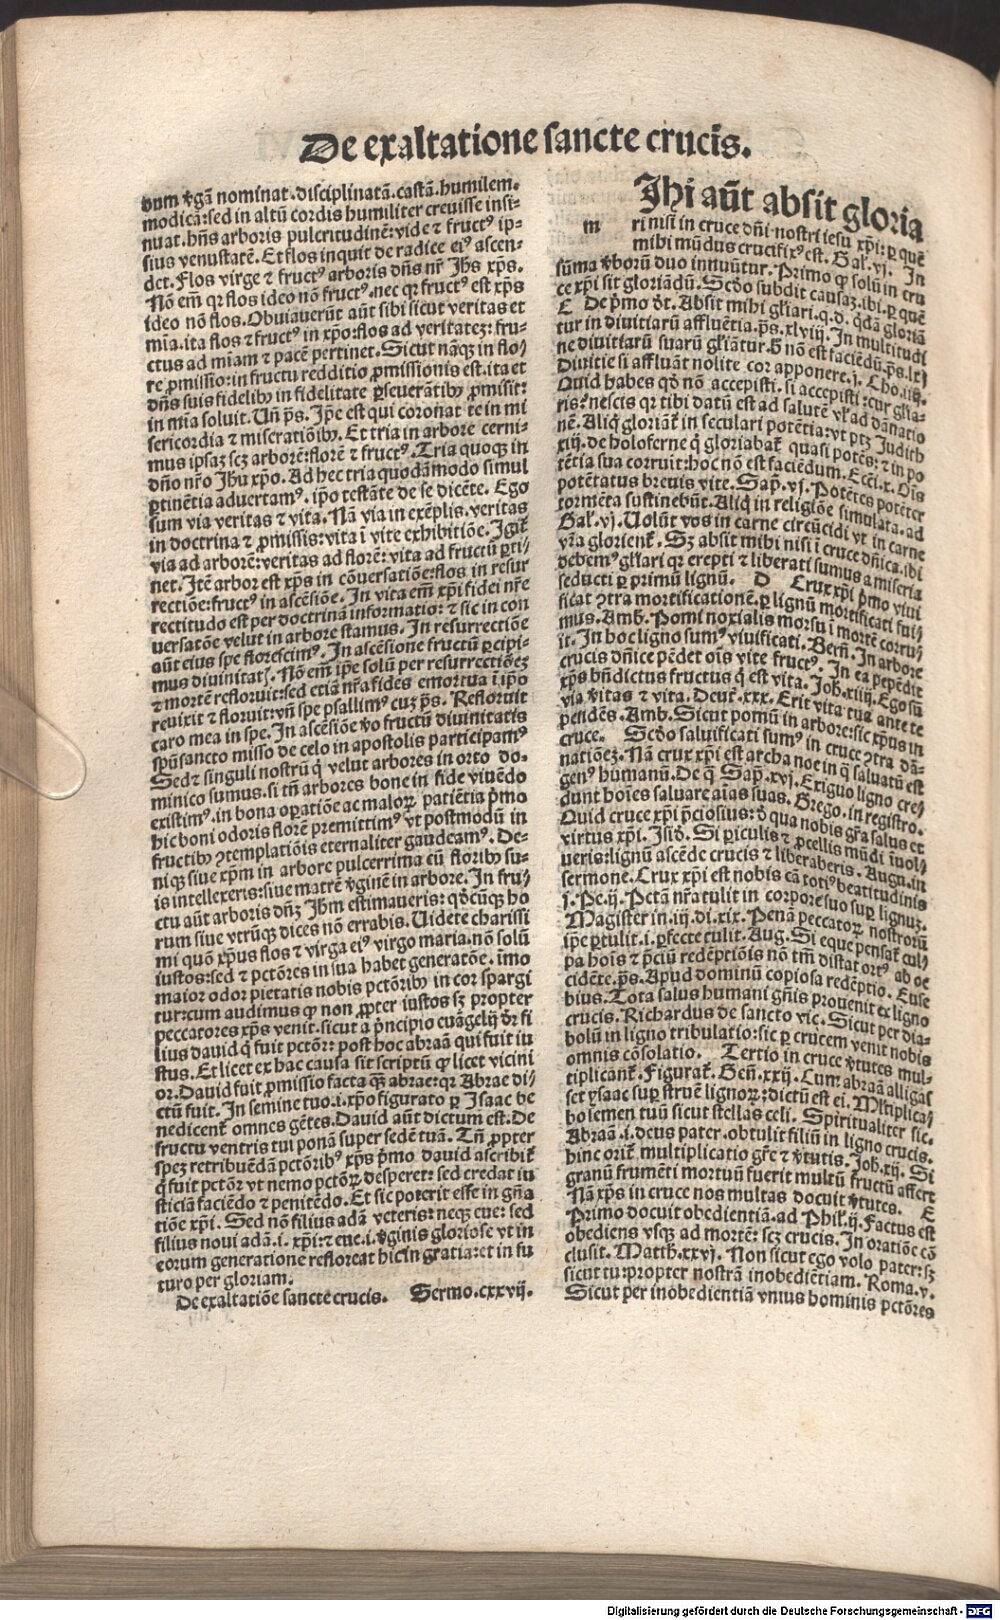 De exaltatione sancte crucis.
dum v̾gã nominat. disciplinatã. castã. humilem.
modicã: sed in altũ cordis humiliter creuisse insi-
nuat. hñs arboris pulcritudinẽ: vide ⁊ fructꝰ ip-
sius venustatẽ. Et flos inquit de radice eiꝰ ascen-
det. Flos virge ⁊ fructꝰ arboris dñs nr̃ Jhs xp̃s.
Nõ em̃ qr flos ideo nõ fructꝰ. nec qr fructꝰ est xp̃s
ideo nõ flos. Obuiauerũt aũt sibi sicut veritas et
mia. ita flos ⁊ fructꝰ in xp̃o: flos ad veritatez: fru-
ctus ad miam ⁊ pacẽ pertinet. Sicut nãqꝫ in flo/
re ꝓmissio: in fructu redditio ꝓmissionis est. ita et
dñs suis fidelibꝫ in fidelitate ꝑseuerãtibꝫ ꝓmisit:
in mia soluit. Uñ ps̃. Ip̃e est qui coronat te in mi
sericordia ⁊ miseratiõibꝫ. Et tria in arbore cerni-
mus ipsaꝫ scꝫ arborẽ: florẽ ⁊ fructꝰ. Tria quoqꝫ in
dño nr̃o Jhu xp̃o. Ad hec tria quodãmodo simul
ꝑtinẽtia aduertamꝰ. ip̃o testãte de se dicẽte. Ego
sum via veritas ⁊ vita. Nã via in exẽplis. veritas
in doctrina ⁊ ꝓmissis: vita ĩ vite exhibitiõe. Igit̃
via ad arborẽ: veritas ad florẽ: vita ad fructũ ꝑti-
net. Itẽ arbor est xp̃s in cõuersatiõe: flos in resur
rectiõe: fructꝰ in ascẽsiõe. In vita em̃ xp̃i fidei nr̃e
rectitudo est per doctrinã informatio: ⁊ sic in con
uersatõe velut in arbore stamus. In resurrectiõe
aũt eius spe florescimꝰ. In ascẽsione fructũ ꝑcipi-
mus diuinitatꝭ. Nõ em̃ ip̃e solũ per resurrectiõeꝫ
⁊ mortẽ refloruit: sed etiã nr̃a fides emortua ĩ ip̃o
reuixit ⁊ floruit: vñ spe psallimꝰ cuꝫ ps̃. Refloruit
caro mea in spe. In ascẽsiõe v̾o fructũ diuinitatis
sp̃u sancto misso de celo in apostolis participamꝰ
Sed ⁊ singuli nostrũ q̃ velut arbores in orto do-
minico sumus. si tñ arbores bone in fide viuẽdo
existimꝰ. in bona oꝑatiõe ac maloꝝ patiẽtia p̃mo
hic boni odoris florẽ premittimꝰ vt postmodũ in
fructibꝫ ꝯtemplatiõis eternaliter gaudeamꝰ. De-
niqꝫ siue xp̃m in arbore pulcerrima cũ floribꝫ su-
is intellexeris: siue matrẽ v̾ginẽ in arbore. In fru/
ctu aũt arboris dñꝫ Jhm estimaueris: qd̾cũqꝫ ho
rum siue vtrũqꝫ dices non errabis. Uidete charissi
mi quõ xp̃us flos ⁊ virga eiꝰ virgo maria. nõ solũ
iustos: sed ⁊ pctõres in sua habet generatõe. imo
maior odor pietatis nobis pctõribꝫ in cor spargi
tur: cum audimus ꝙ non ꝓpter iustos sꝫ propter
peccatores xp̃s venit. sicut a p̃ncipio euãgelij dr̃ fi
lius dauid q̃ fuit pctõr: post hoc abraã qui fuit iu
stus. Et licet ex hac causa sit scriptũ ꝙ licet vicini
or. Dauid fuit ꝓmissio facta qꝫ abrae: qr Abrae di/
ctũ fuit. In semine tuo. i. xp̃o figurato ꝑ Isaac be
nedicent̃ omnes gẽtes. Dauid aũt dictum est. De
fructu ventris tui ponã super sedẽ tuã. Tñ ꝓpter
speꝫ retribuẽdã pctõribꝰ xp̃s p̃mo dauid ascribit̃
q̃ fuit pctõr vt nemo pctõꝝ desperet: sed credat iu
sticiã faciẽdo ⁊ penitẽdo. Et sic poterit esse in gña
tiõe xp̃i. Sed nõ filius adã veteris: neqꝫ eue: sed
filius noui adã. i. xp̃i: ⁊ eue. i. v̾ginis gloriose vt in
eorum generatione refloreat hic in gratia: et in fu
turo per gloriam.
De exaltatiõe sancte crucis. Sermo. cxxvij.
Jhi aũt absit gloria
m ri nisi in cruce dñi nostri iesu xp̃i: ꝑ quẽ
mihi mũdus crucifixꝰ est. Gal. vj. In
sũma v̾borũ duo innuũtur. Primo ꝙ solũ in cru
ce xp̃i sit gloriãdũ. Scd̾o subdit causaꝫ. ibi. ꝑ quẽ
C De p̃mo d̾t. Absit mihi gl̃iari. q. d. q̃dã gloriã
tur in diuitiarũ affluẽtia. ps̃. xlviij. In multitudi
ne diuitiarũ suarũ gl̃iãtur. h̾ nõ est faciẽdũ. ps̃. lxj
Diuitie si affluãt nolite cor apponere. j. Cho. iiij.
Quid habes qd̾ nõ accepisti. si accepisti: cur gl̃ia-
ris: nescis qr tibi datũ est ad salutẽ vl̾ ad dãnatio
nẽ. Aliq̃ gloriãt̃ in seculari potẽtia: vt ptꝫ Judith
xiij. de holoferne q̃ gloriabat̃ quasi potẽs: ⁊ in po
tẽtia sua corruit: hoc nõ est faciẽdum. Ecci. x. Oĩs
potẽtatus breuis vite. Sap. vj. Potẽtes potẽter
tormẽta sustinebũt. Aliq̃ in religiõe simulata. ad
Gal. vj. Uolũt vos in carne circũcidi vt in carne
vr̃a glorient̃. Sꝫ absit mihi nisi ĩ cruce dñica. ibi
debemꝰ gl̃iari qr erepti ⁊ liberati sumus a miseria
seducti ꝑ primũ lignũ. D Crux xp̃i p̃mo viui
ficat ꝯtra mortificationẽ. ꝑ lignũ mortificati fui/
mus. Amb. Pomi noxialis morsu ĩ mortẽ corru/
it. In hoc ligno sumꝰ viuificati. Bern̾. In arbore
crucis dñice pẽdet oĩs vite fructꝰ. In ea pepẽdit
xp̃s bñdictus fructus q̃ est vita. Joh. xiiij. Ego sũ
via v̾itas ⁊ vita. Deut̾. xxx. Erit vita tua ante te
pẽdẽs. Amb. Sicut pomũ in arbore: sic xp̃us in
cruce. Scd̾o saluificati sumꝰ in cruce ꝯtra dã-
nationeꝫ. Nã crux xp̃i est archa noe in q̃ saluatũ est
genꝰ humanũ. De q̃ Sap. xvj. Exiguo ligno cre/
dunt hoĩes saluare aĩas suas. Grego. in registro.
Quid cruce xp̃i p̃ciosius: d̾ qua nobis gr̃a salus et
virtus xp̃i. Isid̾. Si ꝑiculis ⁊ ꝓcellis mũdi ĩuol/
ueris: lignũ ascẽde crucis ⁊ liberaberis. Augu. in
sermone. Crux xp̃i est nobis cã totiꝰ beatitudinis
j. Pe. ij. Pctã nr̃a tulit in corpore suo sup̾ lignuꝫ.
Magister in. iij. di. xix. Penã peccatoꝝ nostrorũ
ip̃e ꝑtulit. i. ꝑfecte tulit. Aug. Si eque pensat̃ cul/
pa hoĩs ⁊ p̃ciũ redẽptiõis nõ tm̃ distat ortꝰ ab oc
cidẽte. ps̃. Apud dominũ copiosa redẽptio. Euse
bius. Tota salus humani gñis prouenit ex ligno
crucis. Richardus de sancto vic. Sicut per dia-
bolũ in ligno tribulatio: sic ꝑ crucem venit nobis
omnis cõsolatio. Tertio in cruce v̾tutes mul-
tiplicant̃. Figurat̃. Geñ. xxij. Cum abraã alligas
set ysaac sup̾ struẽ lignoꝝ: dictũ est ei. Mltiplica/
bo semen tuũ sicut stellas celi. Spiritualiter sic.
Abraã. i. deus pater. obtulit filiũ in ligno crucis.
hinc orit̃ multiplicatio gr̃e ⁊ v̾tutis. Joh. xij. Si
granũ frumẽti mortuũ fuerit multũ fructũ affert
Nã xp̃s in cruce nos multas docuit v̾tutes. E
Primo docuit obedientiã. ad Phil̾. ij. Factus est
obediens vsqꝫ ad mortẽ: scꝫ crucis. In oratiõe cõ
clusit. Matth. xxvj. Non sicut ego volo pater: sꝫ
sicut tu: propter nostrã inobediẽtiam. Roma. v.
Sicut per inobedientiã vnius hominis pctõres
Digitalisierung gefördert durch die Deutsche Forschungsgemeinschaft - DFG